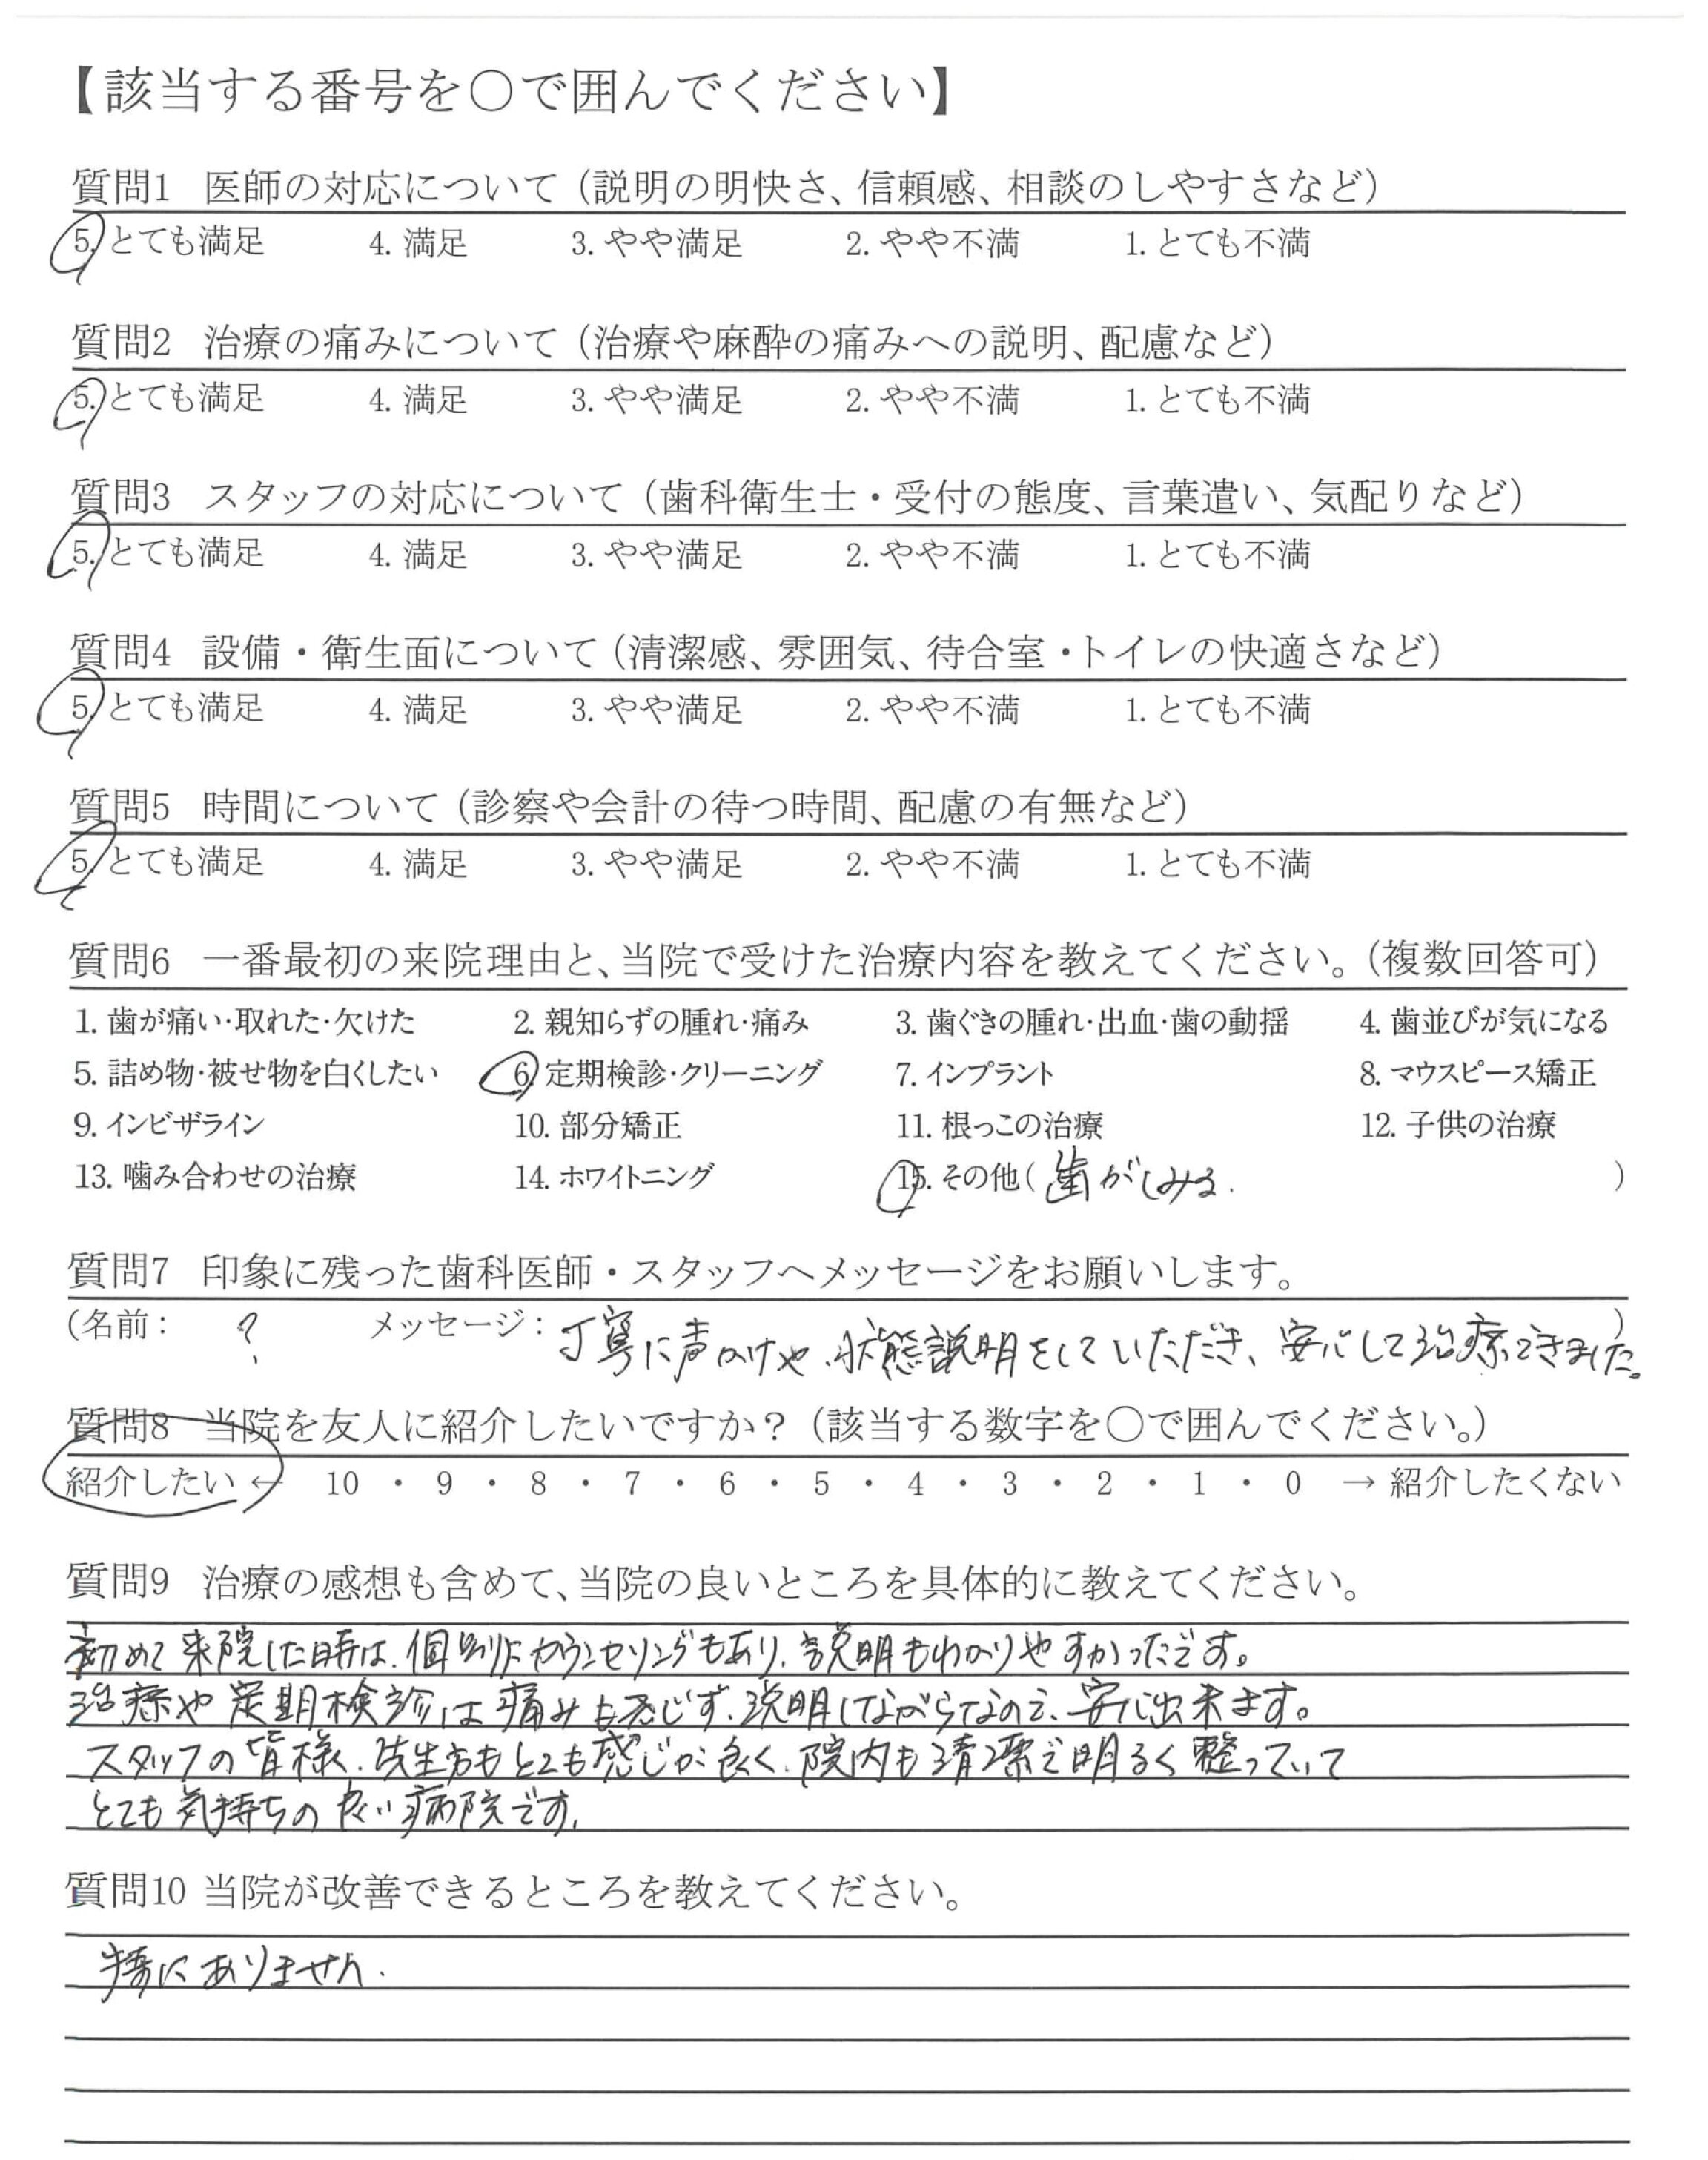 【該当する番号を〇で囲んでください】
質問1 医師の対応について（説明の明快さ、信頼感、相談のしやすさなど）
5. とても満足 4. 満足 3. やや満足 2. やや不満 1. とても不満
質問2 治療の痛みについて（治療や麻酔の痛みへの説明、配慮など）
5. とても満足 4. 満足 3. やや満足 2. やや不満 1. とても不満
質問3 スタッフの対応について（歯科衛生士・受付の態度、言葉遣い、気配りなど）
5. とても満足 4. 満足 3. やや満足 2. やや不満 1. とても不満
質問4 設備・衛生面について（清潔感、雰囲気、待合室・トイレの快適さなど）
5. とても満足 4. 満足 3. やや満足 2. やや不満 1. とても不満
質問5 時間について（診察や会計の待つ時間、配慮の有無など）
5. とても満足 4. 満足 3. やや満足 2. やや不満 1. とても不満
質問6 一番最初の来院理由と、当院で受けた治療内容を教えてください。（複数回答可）
1. 歯が痛い・取れた・欠けた 2. 親知らずの腫れ・痛み 3. 歯ぐきの腫れ・出血・歯の動揺 4. 歯並びが気になる
5. 詰め物・被せ物を白くしたい 6. 定期検診・クリーニング 7. インプラント 8. マウスピース矯正
9. インビザライン 10. 部分矯正 11. 根っこの治療 12. 子供の治療
13. 噛み合わせの治療 14. ホワイトニング 15. その他（歯がしみる. ）
質問7 印象に残った歯科医師・スタッフへメッセージをお願いします。
（名前： ? メッセージ：丁寧に声かけや、状態説明をしていただき、安心して治療できました。）
質問8 当院を友人に紹介したいですか？（該当する数字を〇で囲んでください。）
紹介したい ← 10 ・ 9 ・ 8 ・ 7 ・ 6 ・ 5 ・ 4 ・ 3 ・ 2 ・ 1 ・ 0 → 紹介したくない
質問9 治療の感想も含めて、当院の良いところを具体的に教えてください。
初めて来院した時は、個別にカウンセリングもあり、説明もわかりやすかったです。
治療や定期検診は痛みも感じず、説明しながらなので、安心出来ます。
スタッフの皆様、先生方もとても感じが良く、院内も清潔で明るく整っていて
とても気持ちの良い病院です。
質問10 当院が改善できるところを教えてください。
特にありません.